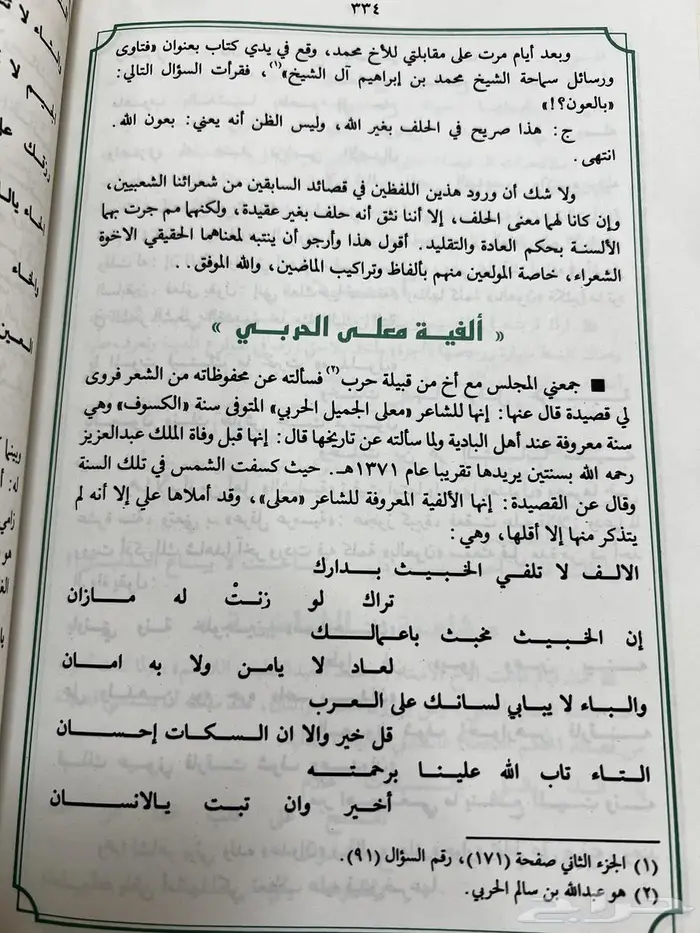 ٣٣٤
وبعد أيام مرت على مقابلتي للأخ محمد، وقع في يدي كتاب بعنوان «فتاوى
ورسائل سماحة الشيخ محمد بن إبراهيم آل الشيخ»(١)، فقرأت السؤال التالي:
«بالعون؟!»
ج: هذا صريح في الحلف بغير الله، وليس الظن أنه يعني: بعون الله.
انتهى.
ولا شك أن ورود هذين اللفظين في قصائد السابقين من شعرائنا الشعبيين،
وإن كانا لهما معنى الحلف، إلا أننا نثق أنه حلف بغير عقيدة، ولكنهما مم جرت بهما
الألسنة بحكم العادة والتقليد. أقول هذا وأرجو أن ينتبه لمعناهما الحقيقي الاخوة
الشعراء، خاصة المولعين منهم بألفاظ وتراكيب الماضين، والله الموفق..
« ألفية معلى الحربي »
■ جمعني المجلس مع أخ من قبيلة حرب(٢) فسألته عن محفوظاته من الشعر فروى
لي قصيدة قال عنها: إنها للشاعر «معلى الجميل الحربي» المتوفى سنة «الكسوف» وهي
سنة معروفة عند أهل البادية ولما سألته عن تاريخها قال: إنها قبل وفاة الملك عبدالعزيز
رحمه الله بسنتين يريدها تقريبا عام ١٣٧١هـ. حيث كسفت الشمس في تلك السنة
وقال عن القصيدة: إنها الألفية المعروفة للشاعر «معلى»، وقد أملاها علي إلا أنه لم
يتذكر منها إلا أقلها، وهي:
الالف لا تلفي الخبيث بدارك
تراك لو زنتْ له مازان
إن الخبيث مخبث باعمالك
لعاد لا يامن ولا به امان
والباء لا يبابي لسانك على العرب
قل خير والا ان السكات إحسان
التاء تاب الله علينا برحمته
أخير وان تبت يالانسان
(١) الجزء الثاني صفحة (١٧١)، رقم السؤال (٩١).
(٢) هو عبدالله بن سالم الحربي.
حراج